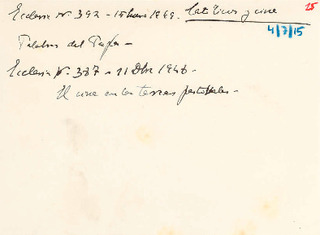 Ecclesia Nº 392 - 15 Enero 1949. Católicos y cine
25
4/3/15
Palabras del Papa -
Ecclesia Nº 387 - 11 Dbre 1948 -
El cine en las tierras